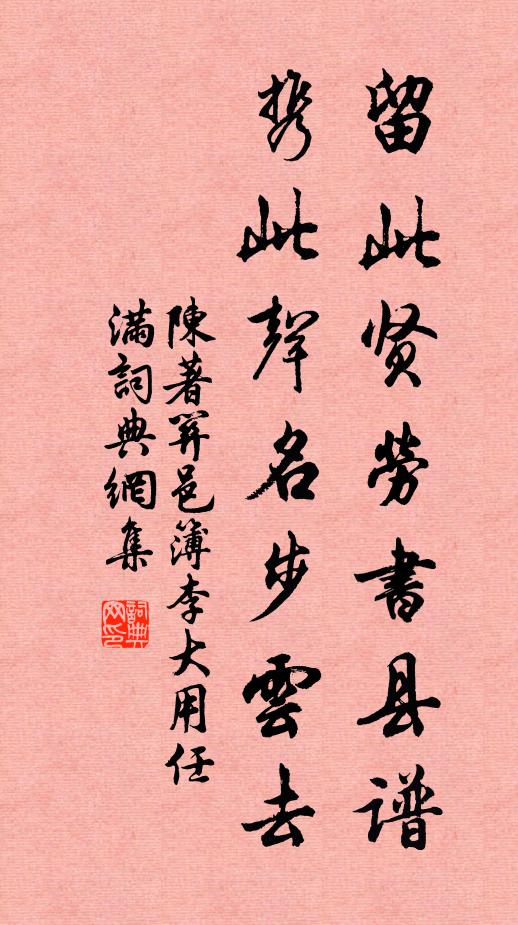 留此贤勞書县谱
携此聲名步雲去
陳著邑簿李大用任
滿詞典網集
詞典网印